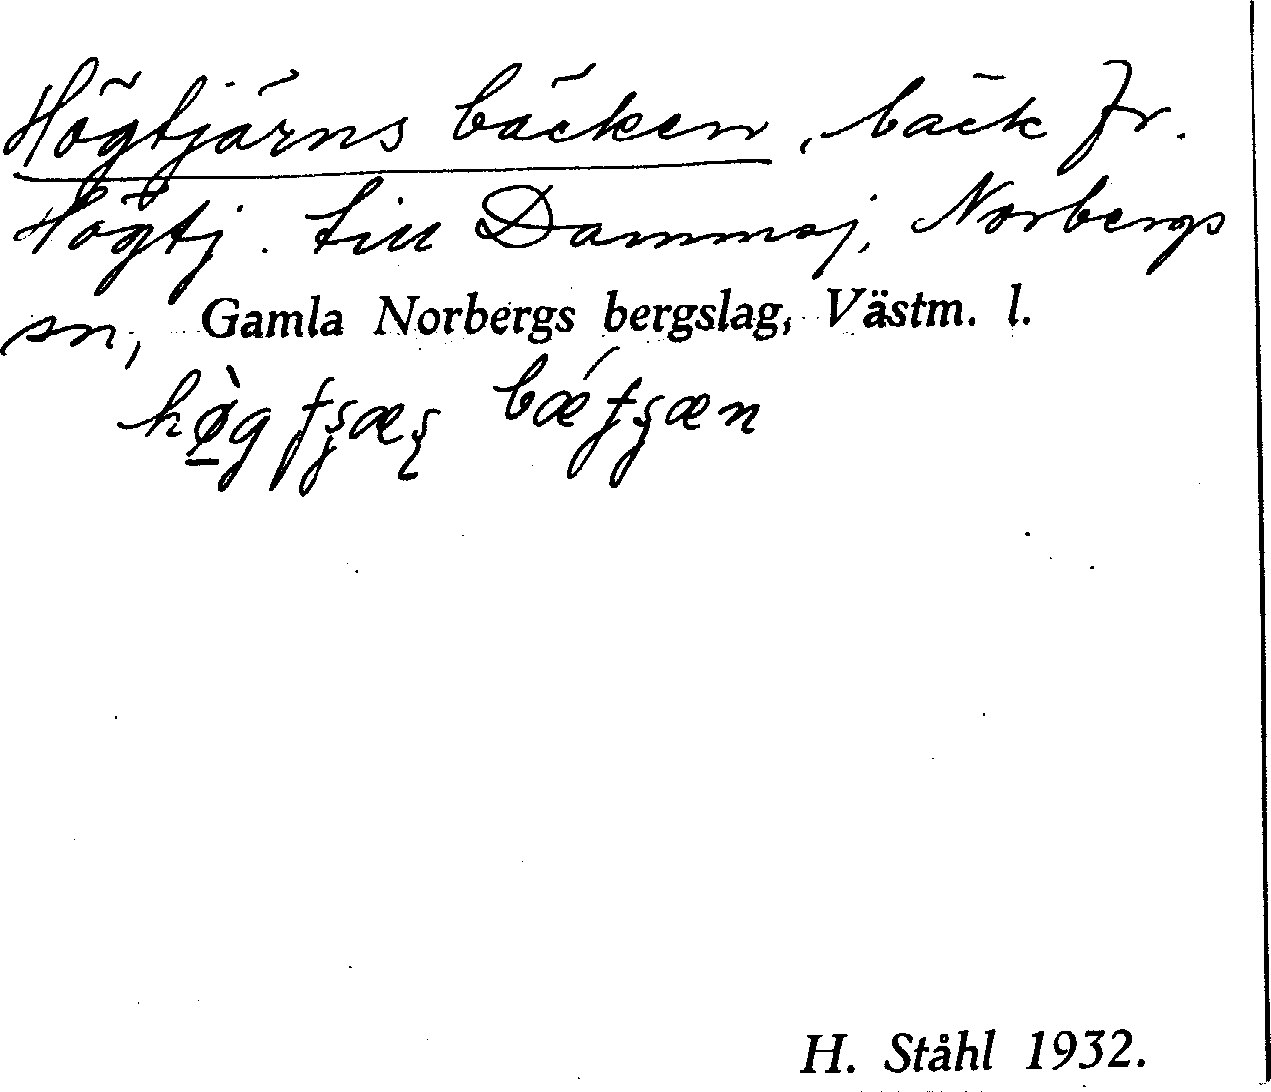 Högtjärnsbäcken, bäck fr.
Högtj. till Dammsj, Norbergs
sn, Gamla Norbergs bergslag, Västm. l.
H. Ståhl 1932.